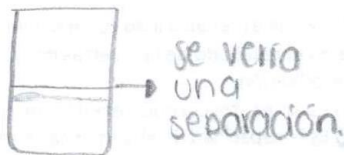 se vería
una
separación.